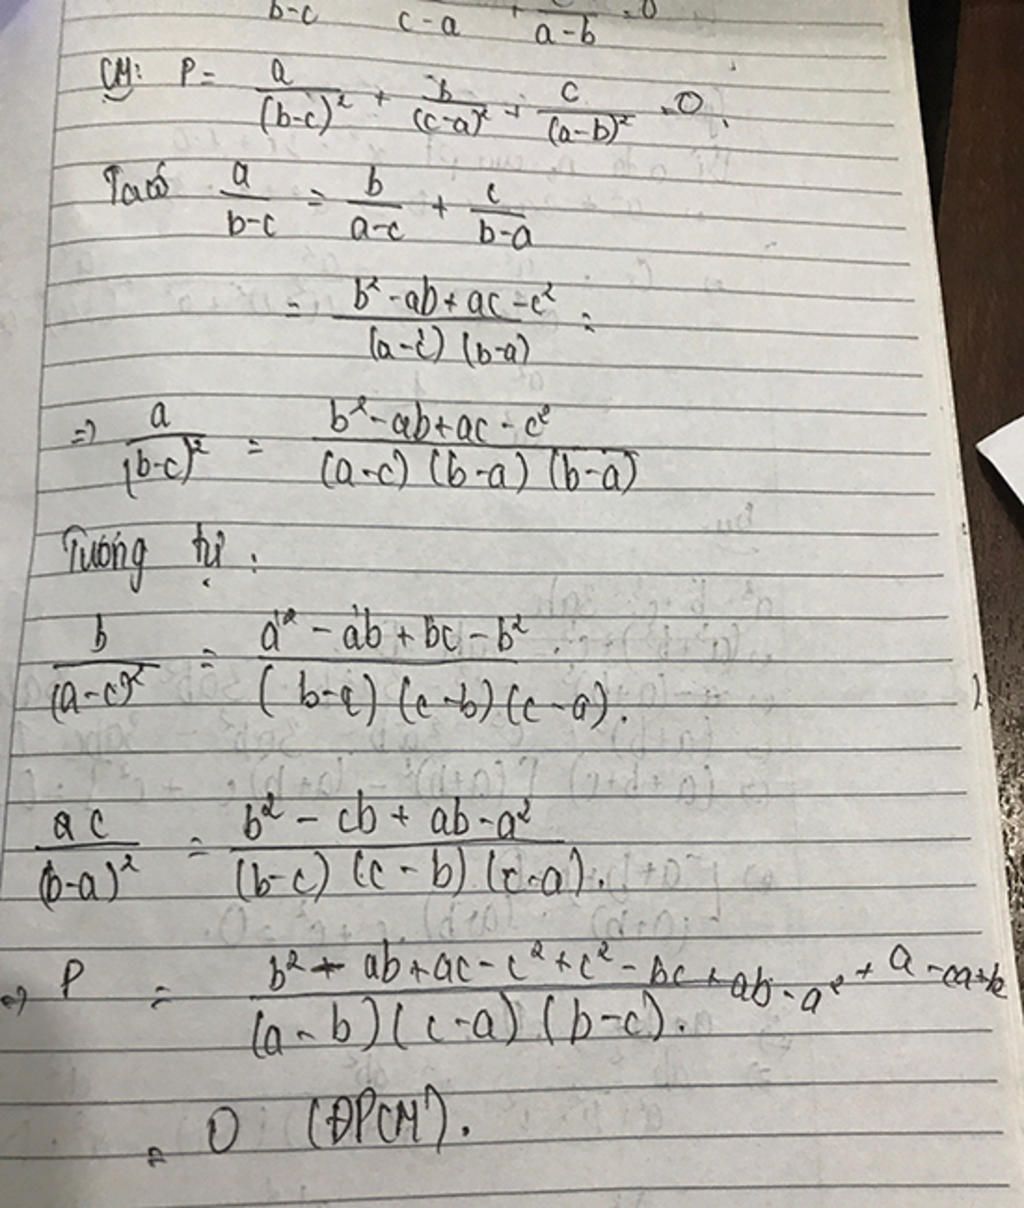 b-c c-a + c/(a-b) = 0
CM: P = a/(b-c)² + b/(c-a)² + c/(a-b)² = 0.
Ta có a/(b-c) = b/(a-c) + c/(b-a)
= (b² - ab + ac - c²)/((a-c) (b-a)) =
=> a/(b-c)² = (b² - ab + ac - c²)/((a-c) (b-a) (b-a))
Tương tự :
b/(a-c)² = (a² - ab + bc - b²)/((b-a) (c-b) (c-a)).
ac/(b-a)² = (b² - cb + ab - a²)/((b-c) (c-b) (c-a)).
=> P = (b² - ab + ac - c² + c² - bc + ab - a² + a - ca + b)/((a-b) (c-a) (b-c)).
= 0 (ĐPCM).